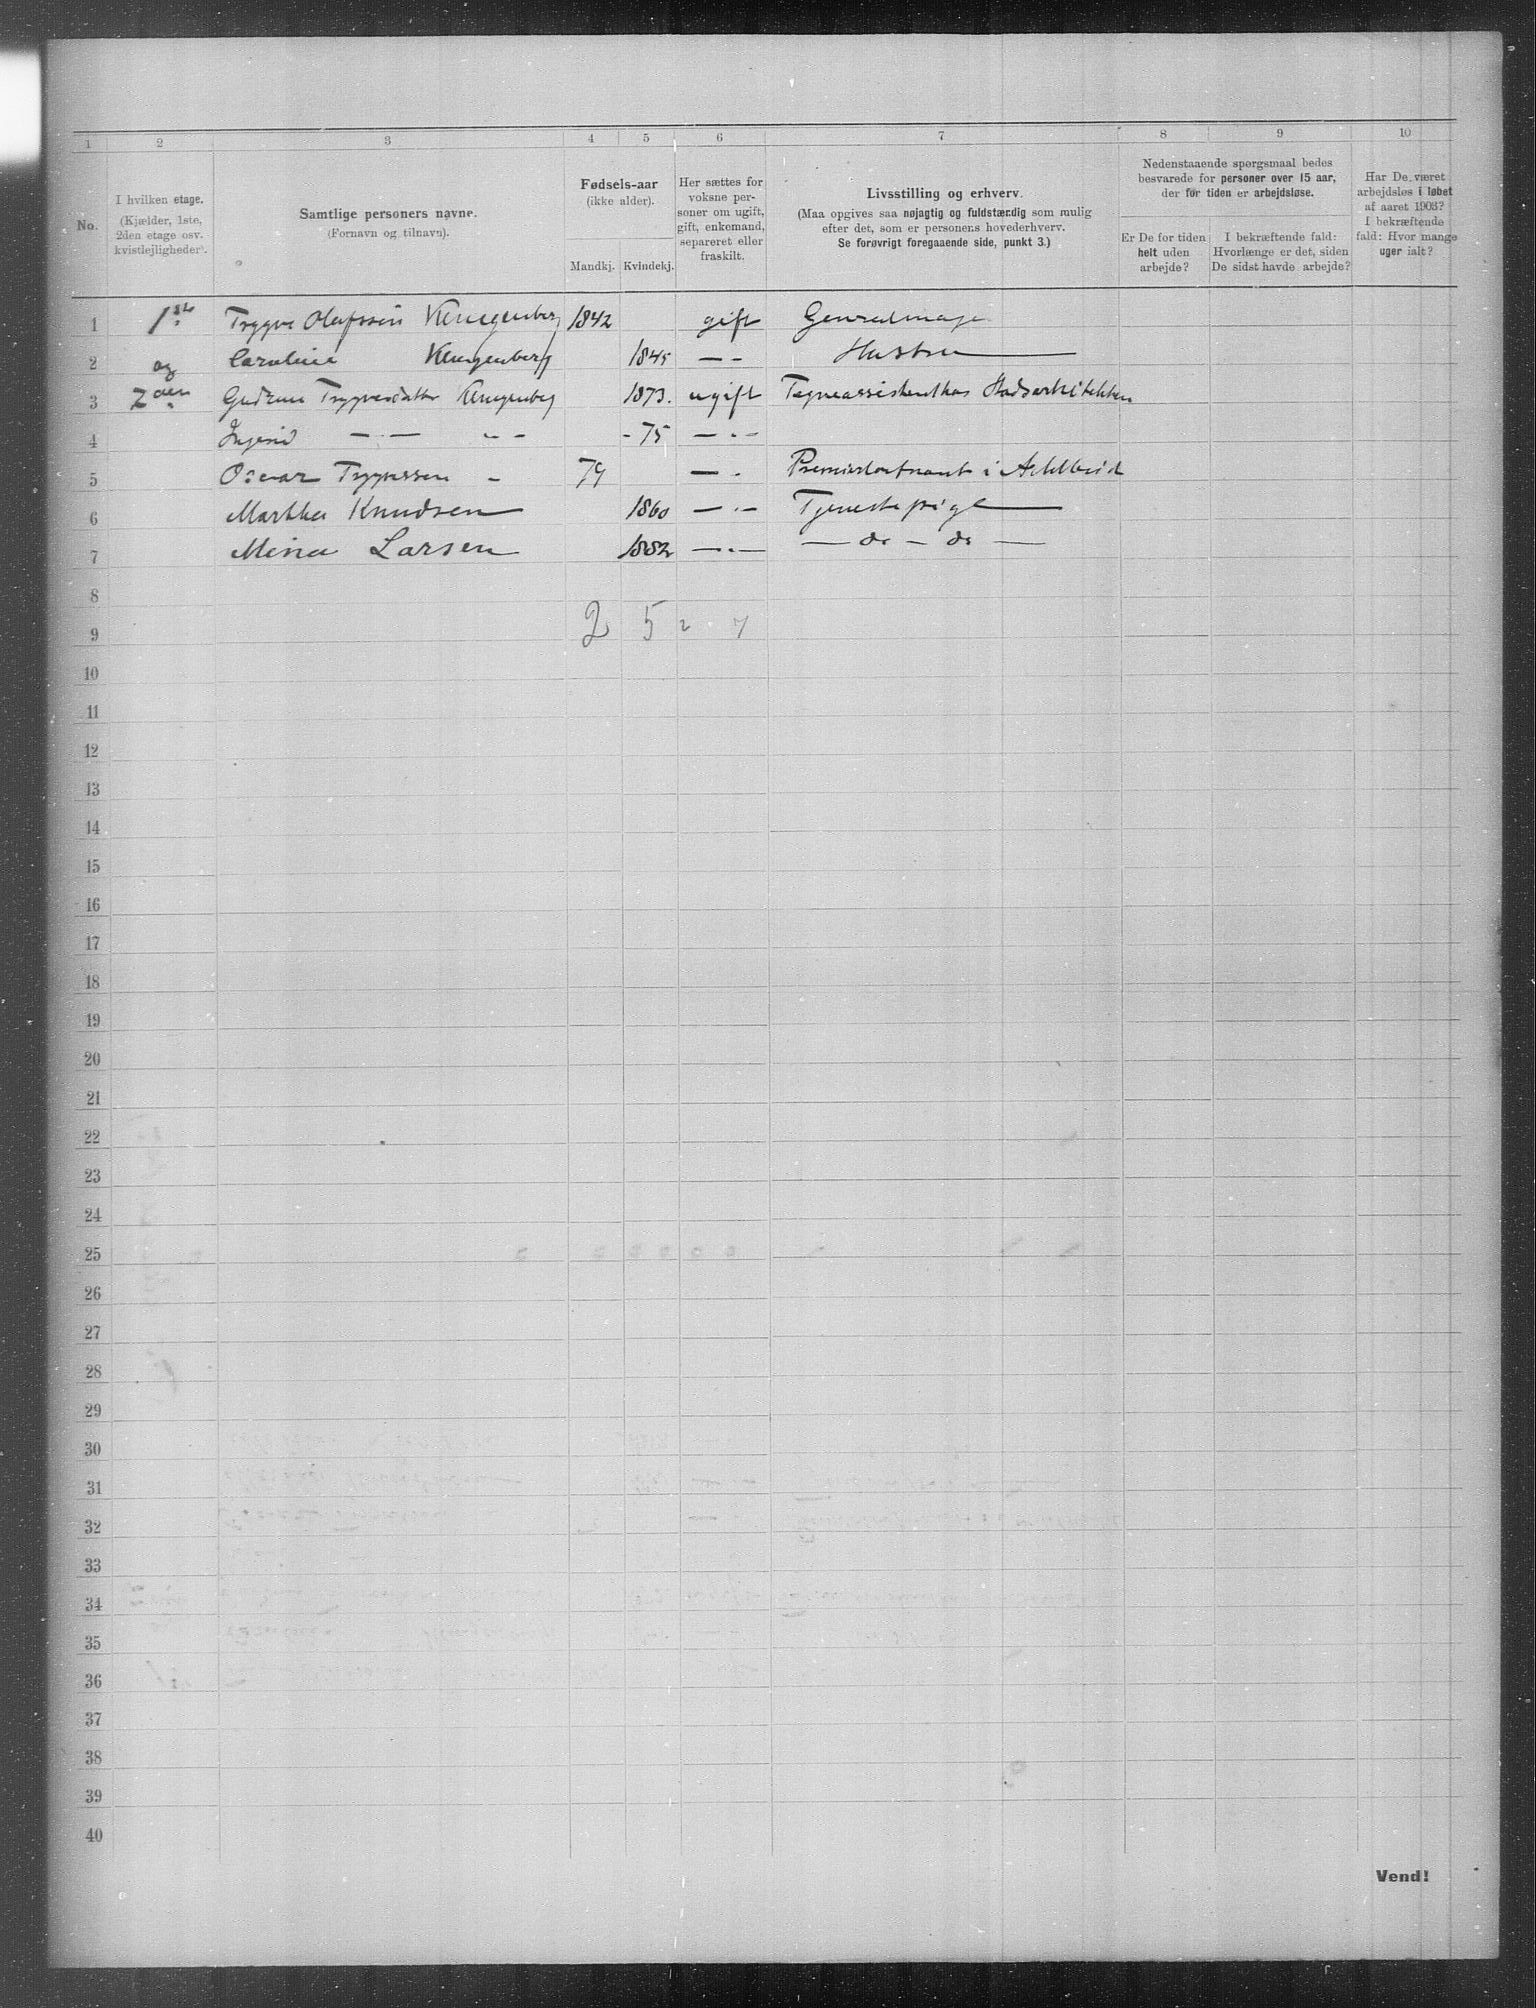 1 2 3 4 5 6 7 8 9 10
No.
I hvilken etage.
(Kjælder, 1ste,
2den etage osv.
kvistlejligheder).
Samtlige personers navne.
(Fornavn og tilnavn).
Fødsels-aar
(ikke alder).
Mandkj. Kvindekj.
Her sættes for
voksne per-
soner om ugift,
gift, enkemand,
separeret eller
fraskilt.
Livsstilling og erhverv.
(Maa opgives saa nøjagtig og fuldstærdig som mulig
efter det, som er personens hovederhverv.
Se forøvrigt foregaaende side, punkt 3.)
Nedenstaaende spørgsmaal bedes
besvarede for personer over 15 aar,
der for tiden er arbejdsløse.
Er De for tiden
helt uden
arbejde?
I bekræftende fald:
Hvorlænge er det, siden
De sidst havde arbejde?
Har De været
arbejdsløs i løbet
af aaret 1903?
I bekræftende
fald: Hvor mange
uger ialt?
1 1st Trygve Olafssøn Klingenberg 1842 gift
2 og Caroline Klingenberg 1845 — - Hustru
3 2den Gudrun Trygvesdatter Klingenberg 1873. ugift Tegneassistent hos Stadsarkitekten
4 Ingerid — - — - - - 75 — - -
5 Trygvessøn - 79 — - Premierløitnant i
6 Martha Knudsen 1860 — - — Tjenestepige
7 Mina Larsen 1882 — - — — do — do —
8
9 2 5 2 . 7
10
11
12
13
14
15
16
17
18
19
20
21
22
23
24
25
26
27
28
29
30
31
32
33
34
35
36
37
38
39
40
Vend!